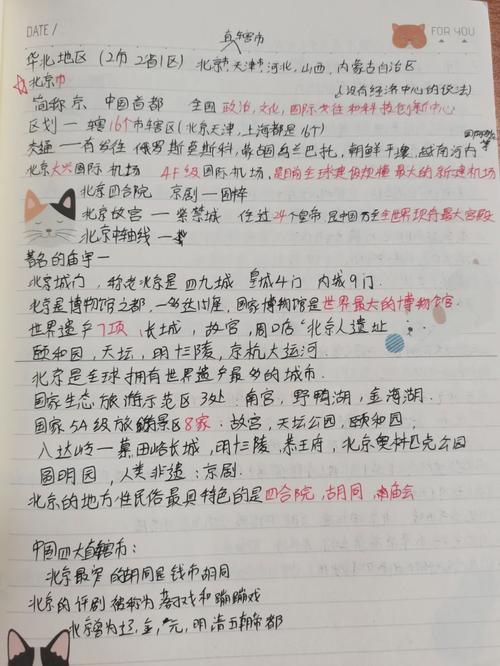 DATE /
FOR YOU
直辖市
华北地区（2市 2省1区）北京市,天津市,河北,山西,内蒙古自治区
北京市 （没有经济中心的说法）
简称京 中国首都 全国政治,文化,国际交往和科技创新中心
区划 — 辖16个市辖区（北京天津,上海都是16个）
交通 — 有发往俄罗斯莫斯科,蒙古乌兰巴托,朝鲜平壤,越南河内等 国际列车
北京大兴国际机场 4F级国际机场,是目前全球建设规模最大的新建机场
北京四合院 京剧 — 国粹
北京故宫 — 紫禁城 住过24个皇帝 是中国乃至全世界现存最大宫殿
北京中轴线 —
著名的庙宇 —
北京城门,称老北京是四九城 皇城4门 内城9门.
北京是博物馆之都,一多达 座,国家博物馆是世界最大的博物馆.
世界遗产7项 长城,故宫,周口店"北京人遗址
颐和园,天坛,明十三陵,京杭大运河.
北京是全球拥有世界遗产最多的城市.
国家生态旅游示范区3处:南宫,野鸭湖,金海湖.
国家5A级旅游景区8家:故宫,天坛公园,颐和园,
八达岭—慕田峪长城,明十三陵,恭王府,北京奥林匹克公园
圆明园,人类非遗:京剧.
北京的地方性民俗最具特色的是四合院,胡同,庙会
中国四大直辖市:
北京最窄的胡同是钱市胡同
北京的评剧被称为落子戏和蹦蹦戏
北京曾为辽,金,元,明清五朝帝都